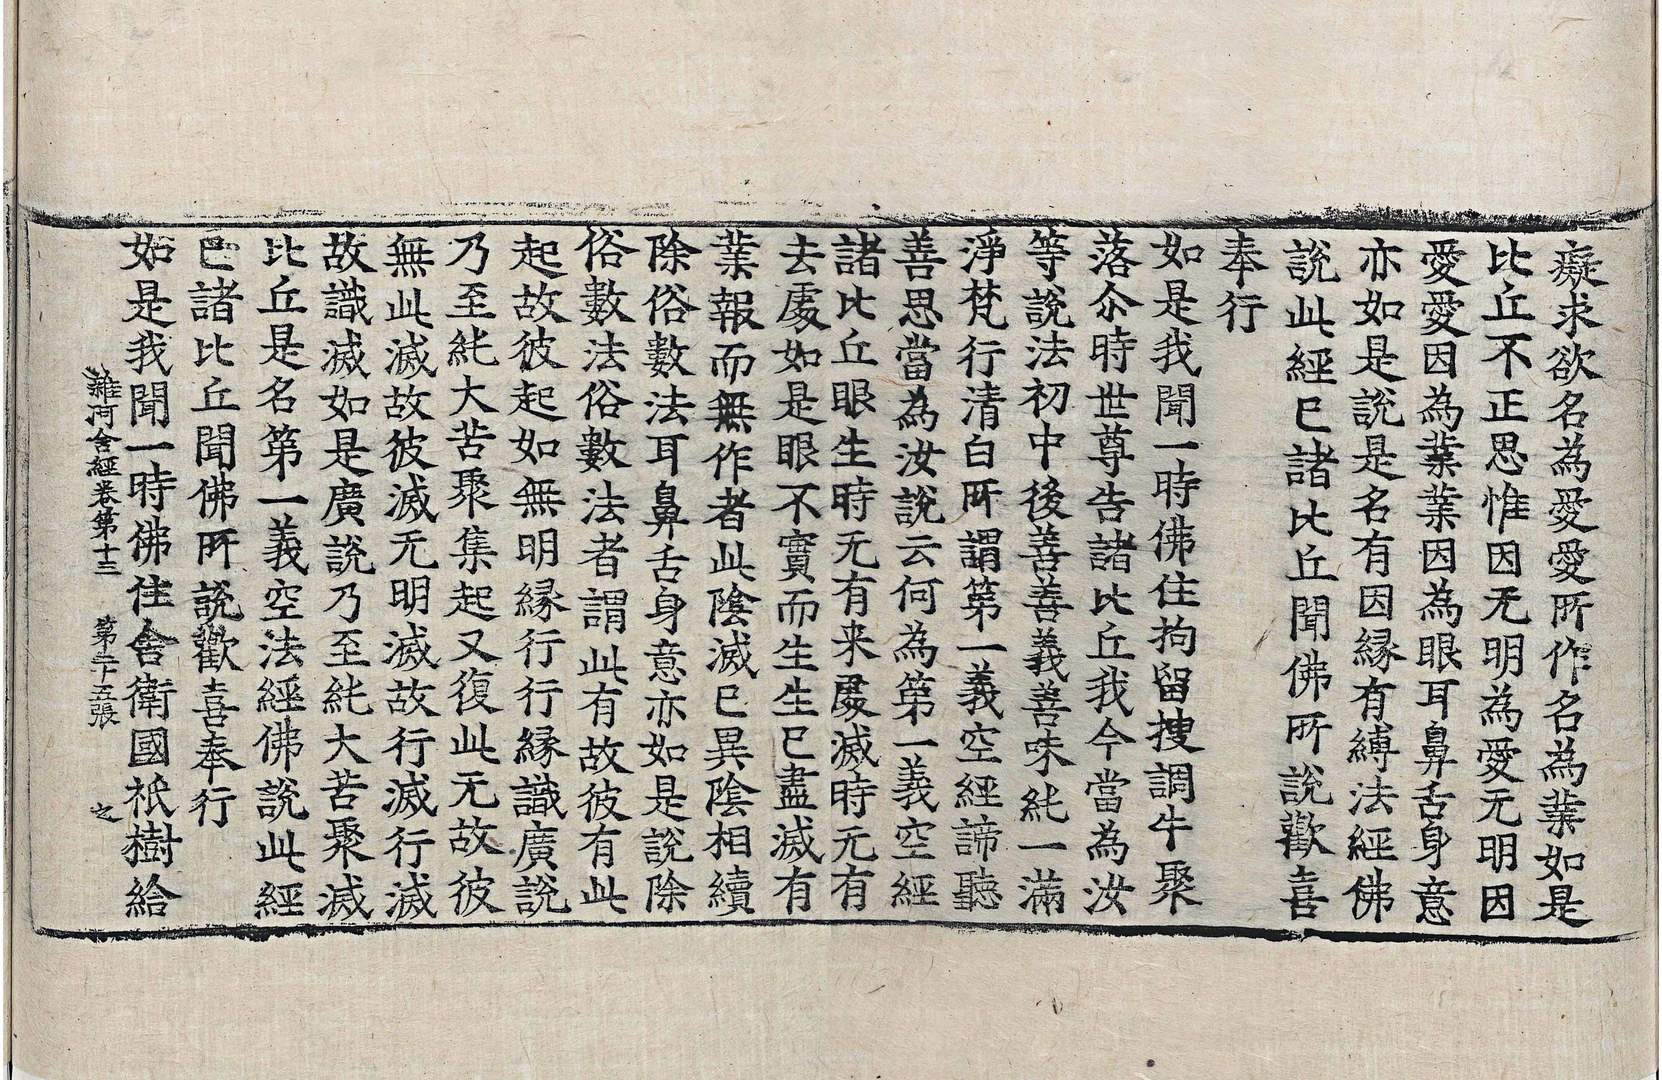 癡求欲名為愛愛所作名為業如是
比丘不正思惟因无明為愛无明因
愛愛因為業業因為眼耳鼻舌身意
亦如是說是名有因縁有縛法經佛
說此經已諸比丘聞佛所說歡喜
奉行
如是我聞一時佛住拘留搜調牛聚
落尒時世尊告諸比丘我今當為汝
等說法初中後善善義善味純一滿
淨梵行清白所謂第一義空經諦聽
善思當為汝說云何為第一義空經
諸比丘眼生時无有来處滅時无有
去處如是眼不實而生生已盡滅有
業報而無作者此陰滅已異陰相續
除俗數法耳鼻舌身意亦如是說除
俗數法俗數法者謂此有故彼有此
起故彼起如無明縁行行縁識廣說
乃至純大苦聚集起又復此无故彼
無此滅故彼滅无明滅故行滅行滅
故識滅如是廣說乃至純大苦聚滅
比丘是名第一義空法經佛說此經
已諸比丘聞佛所說歡喜奉行
如是我聞一時佛住舍衛國祇樹給
雜阿含經卷第十三 第二十五張 之